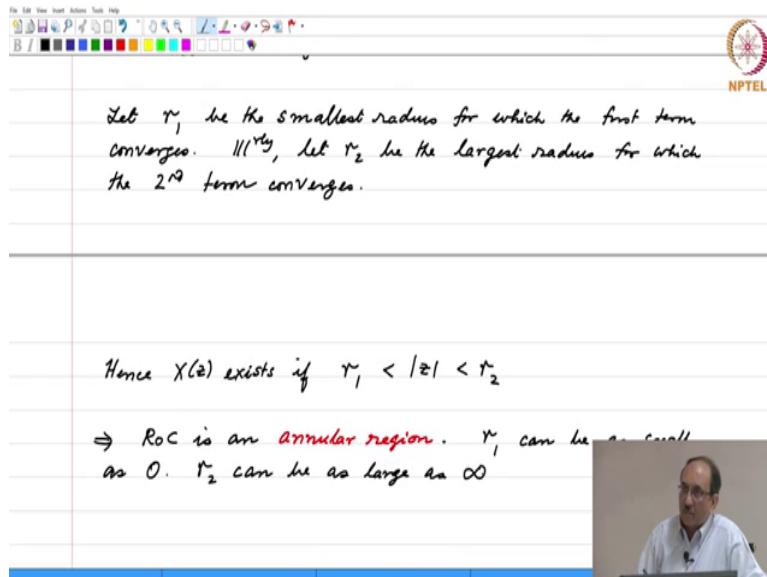 File Edit View Insert Actions Tools Help
B I
NPTEL
Let r₁ be the smallest radius for which the first term
converges. |||rly, let r₂ be the largest radius for which
the 2nd term converges.
Hence X(z) exists if r₁ < |z| < r₂
⇒ RoC is an annular region. r₁ can be as small
as 0. r₂ can be as large as ∞